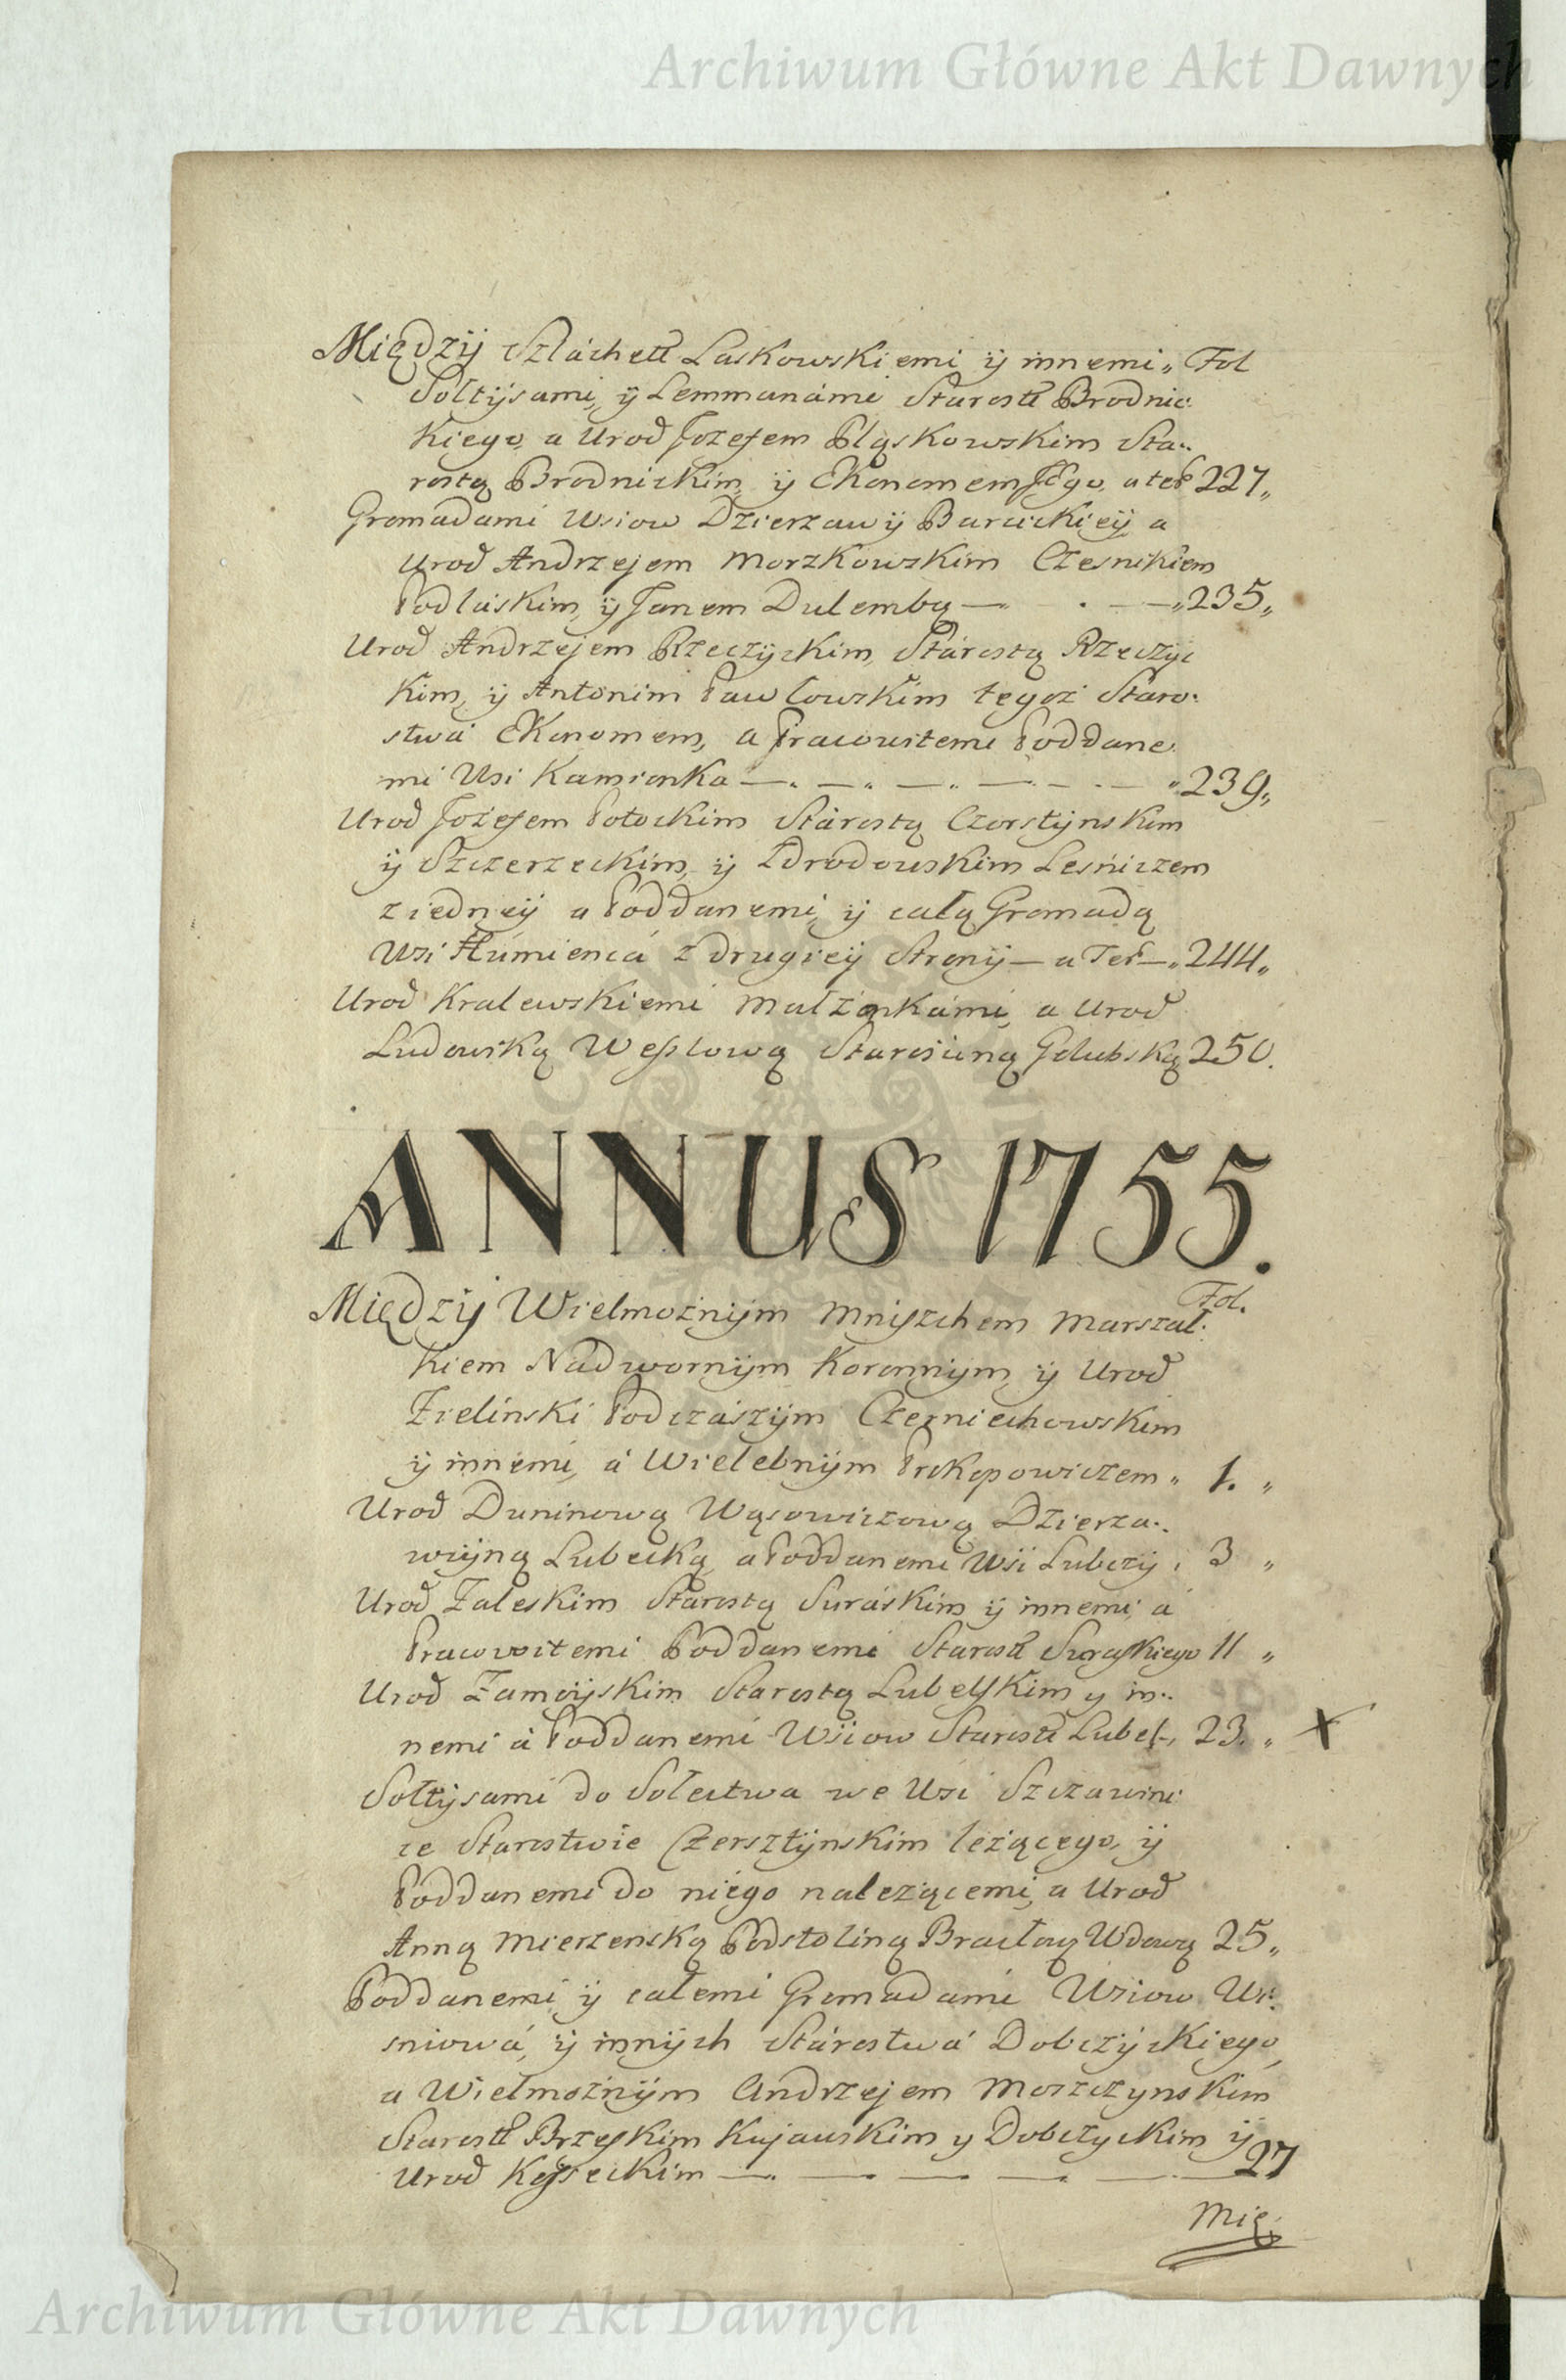 Archiwum Główne Akt Dawnych
Międzÿ Szláchett Laskowskiemi ÿ innemi „ Fol
Soltÿsami, ÿ Lemmanámi Starostt Brodnic:
Kiego, a Urod Jozefem Pląskowskim Sta:
rostą Brodnickim, ÿ Ekonomem Jego, a też 227„
Gromadami Wsiow Dzierzawÿ Barcickieÿ a
Urod Andrzejem Morzkowskim Czesnikiem
Podláskim, ÿ Janem Dulembą — . — „235„
Urod Andrzejem Rzeczÿckim, Stárostą Rzeczÿc
Kim, ÿ Antonim Pawlowskim tegoż Staro:
stwá Ekonomem, a Pracowitemi Poddane
mi Wsi Kamionka — . — . — . — . — „239„
Urod Jożefem Potockim Stárostą Czorstÿnskim
ÿ Szczerzeckim, ÿ Zdrodowskim Leśniczem
z iedneÿ a Poddanemi, ÿ całą Gromadą
Wsi Humiencá z drugieÿ Stronÿ — a Też — „244„
Urod Kralewskiemi Małżonkámi, a Urod
Ludowiką Weslową Starościną Golubską 250.
ANNUS 1755.
Fol.
Międzÿ Wielmożnÿm Mniszchem Marszał:
Kiem Nadwornÿm Koronnÿm ÿ Urod
Zielinski Podczászÿm Czerniechowskim
ÿ innemi, á Wielebnÿm Prokopowiczem „ 1. „
Urod Duninową Wąsowiczową Dzierza:
wÿną Lubecką, a Poddanemi Wśi Lubczÿ, 3 „
Urod Zaleskim Starostą Suráskim ÿ innemi, á
Pracowitemi Poddanemi Starostt Suraskiego 11 „
Urod Zamoÿskim Starostą Lubelskim y in:
nemi á Poddanemi Wśiow Starostt Lubel:, 23. „ X
Sołtÿsami do Sołectwa we Wsi Szczawni
ce Starostwie Czersztÿnskim leżącego, ÿ
Poddanemi do niego nalezącemi, a Urod
Anną Mierzenską Podstoliną Bracławą Wdową 25„
Poddanemi, ÿ całemi Gromadami Wsiow Wi:
sniowá, ÿ innÿch Stárostwá Dobczÿckiego,
a Wielmożnÿm Andrzejem Moszczynskim
Starostt Brzeskim Kujauskim y Dobczyckim ÿ
Urod Kosseckim — . — . — . — . — 27
Mię:
Archiwum Główne Akt Dawnych